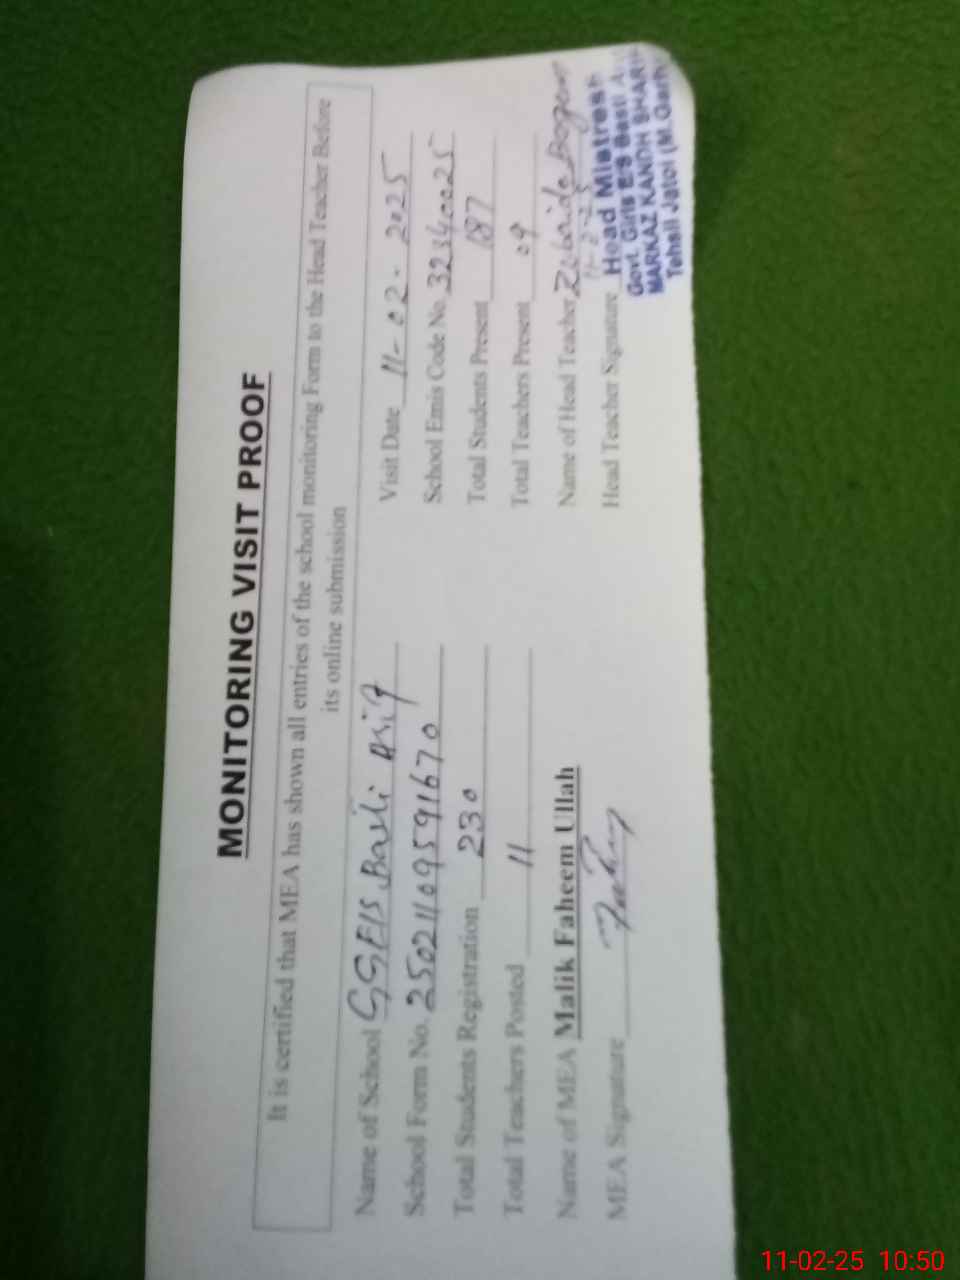 MONITORING VISIT PROOF
It is certified that MEA has shown all entries of the school monitoring Form to the Head Teacher Before
its online submission
Name of School GGEIS Basti Asif
Visit Date 11-02-2025
School Form No. 25021109591670
School Emis Code No. 32340025
Total Students Registration 230
Total Students Present 187
Total Teachers Posted 11
Total Teachers Present 09
Name of MEA Malik Faheem Ullah
Name of Head Teacher Zubaida Begum
11-2-25
MEA Signature
Head Teacher Signature
Head Mistress
Govt. Girls E/S Basti
MARKAZ KANDH SHARIF
Tehsil Jatoi (M.Garh)
11-02-25 10:50